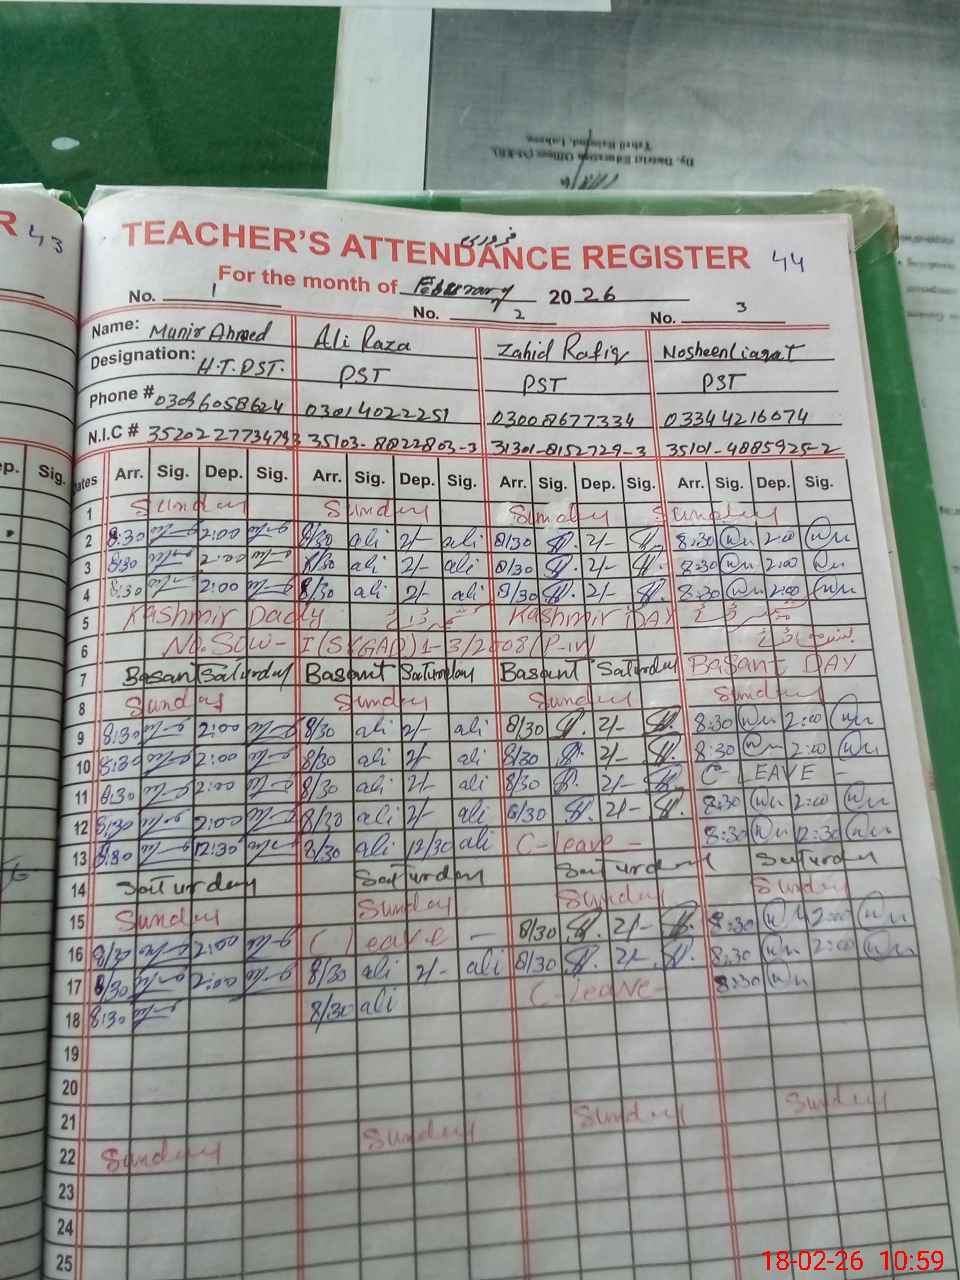 Dy. District Education Officer (M-EE),
Tehsil Raiwind, Lahore.
R 43
TEACHER'S ATTENDANCE REGISTER 44
فروری
For the month of February 2026
No. 1 No. 2 No. 3
Name: Munir Ahmed Ali Raza Zahid Rafiq Nosheen Liaqat
Designation: H.T. PST. PST PST PST
Phone # 03096058624 03014022251 03008677334 03344216074
N.I.C # 3520227734793 35103-8822803-3 31301-8152729-3 35101-4885925-2
ep. Sig. Dates Arr. Sig. Dep. Sig. Arr. Sig. Dep. Sig. Arr. Sig. Dep. Sig. Arr. Sig. Dep. Sig.
1 Sunday Sunday Sunday Sunday
2 8:30 2:00 8/30 ali 2/- ali 8/30 2/- 8:30 2:00
3 8:30 2:00 8/30 ali 2/- ali 8/30 2/- 8:30 2:00
4 8:30 2:00 8/30 ali 2/- ali 8/30 2/- 8:30 2:00
5 Kashmir Dady Kashmir DAY
6 No. SOW-I(S&GAD)1-3/2008(P-IV)
7 Basant Saturday Basant Saturday Basant Saturday Basant DAY
8 Sunday Sunday Sunday Sunday
9 8:30 2:00 8/30 ali 2/- ali 8/30 2/- 8:30 2:00
10 8:30 2:00 8/30 ali 2/- ali 8/30 2/- 8:30 2:00
11 8:30 2:00 8/30 ali 2/- ali 8/30 2/- C-LEAVE -
12 8:30 2:00 8/30 ali 2/- ali 8/30 2/- 8:30 2:00
13 8:30 12:30 8/30 ali 12/30 ali C-Leave - 8:30 12:30
14 Saturday Saturday Saturday Saturday
15 Sunday Sunday Sunday Sunday
16 8/30 2:00 C Leave - 8/30 2/- 8:30 2:00
17 8/30 2:00 8/30 ali 2/- ali 8/30 2/- 8:30 2:00
18 8:30 8/30 ali C-Leave 8:30
19
20
21
22 Sunday Sunday Sunday Sunday
23
24
25
18-02-26 10:59